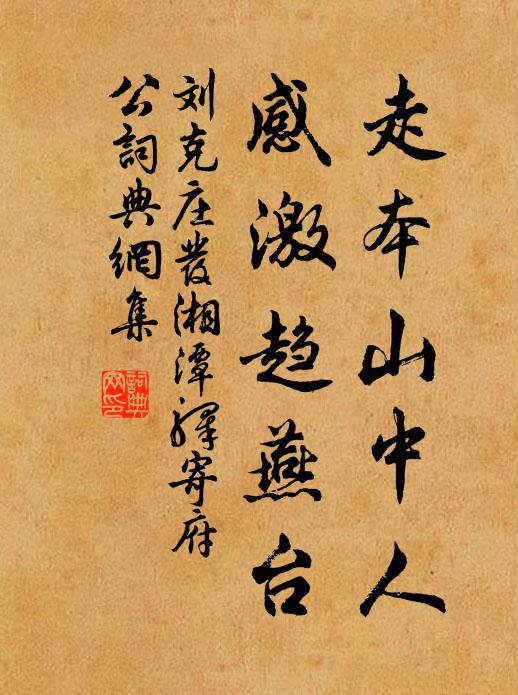 走本山中人
感激趋燕台
刘克庄发湘潭驿寄府
公词典網集
詞典網印